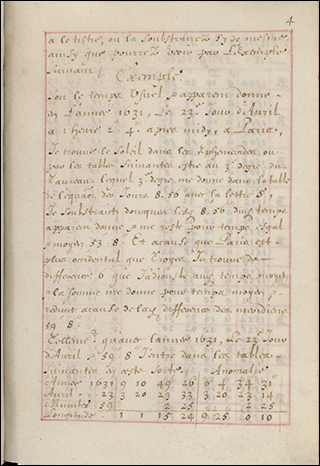 4
a le tiltre, ou la Soubstrairez Sy de mesme
ainsy que pourrez veoir par L'exemple
Suivant
Exemple
Soit le temps Usuel, & apparen donné
en L'annee 1631, Le 23e Jour d'Avril
a 1 heure 2' 4" apres midy, a Paris,
Je trouve le Soleil dans les Ephemerides, ou
par les tables Suivantes estre au 3e degré du
Taureau lequel 3e degre me donne dans la table
de l'equaõn des Jours 8' 56" avec la lettre S,
Je Soubstrait doncques les 8' 56" du temps
apparen donné & me reste pour temps Egal
& moyen 53' 8" Et a cause que Paris est
plus occidental que Troyes Je trouve de
difference 6' que J'adiouste aux temps moyen
& la somme me donne pour temps moyen &
reduit a cause de la difference des meridiens
59' 8"
Tellemt quavec lannee 1631, Le 23e Jour
d'Avril & 59' 8" J'entre dans les tables
Suivantes en este Sorte Anomalie
Annes 1631 9 10 49 26 6 4 34 31
Avril 23 3 20 23 33 3 20 23 14
Minutes 59 2 25 2 25
Longitude 1 1 15 24 9 25 0 10